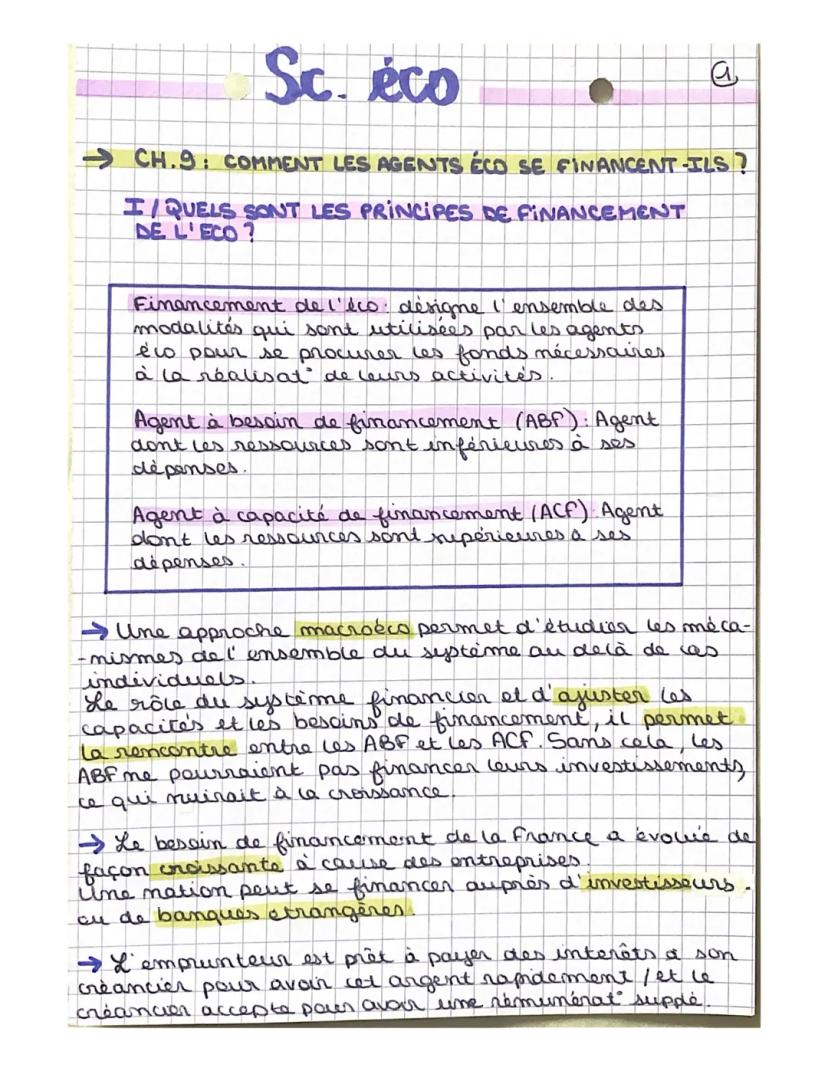 Sc. éco
①
→ CH.9 : COMMENT LES AGENTS ÉCO SE FINANCENT-ILS ?
I / QUELS SONT LES PRINCIPES DE FINANCEMENT
DE L'ECO ?
Financement de l'éco : désigne l'ensemble des
modalités qui sont utilisées par les agents
éco pour se procurer les fonds nécessaires
à la réalisat° de leurs activités.
Agent à besoin de financement (ABF) : Agent
dont les ressources sont inférieures à ses
dépenses.
Agent à capacité de financement (ACF) : Agent
dont les ressources sont supérieures à ses
dépenses.
→ Une approche macroéco permet d'étudier les méca-
-nismes de l'ensemble du système au delà de cas
individuels.
Le rôle du système financier et d'ajuster les
capacités et les besoins de financement, il permet
la rencontre entre les ABF et les ACF. Sans cela, les
ABF ne pourraient pas financer leurs investissements,
ce qui nuirait à la croissance.
→ Le besoin de financement de la France a évolué de
façon croissante à cause des entreprises.
Une nation peut se financer auprès d'investisseurs
ou de banques étrangères.
→ L'emprunteur est prêt à payer des intérêts à son
créancier pour avoir cet argent rapidement / et le
créancier accepte pour avoir une rémunérat° supplé.